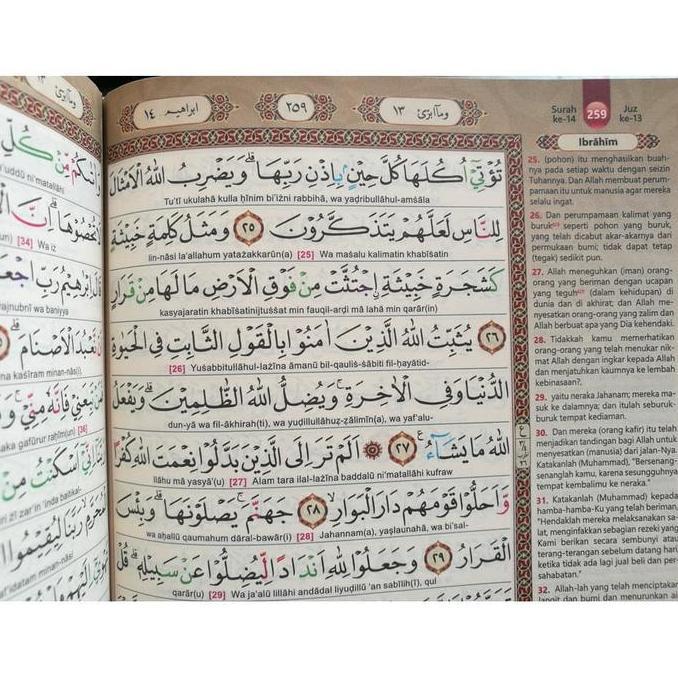 ابراهيم ١٤
٢٥٩
وماابرئ ١٣
Surah ke-14
259
Juz ke-13
Ibrāhīm
تُؤْتِيْٓ اُكُلَهَا كُلَّ حِيْنٍ ۢبِاِذْنِ رَبِّهَاۗ وَيَضْرِبُ اللّٰهُ الْاَمْثَالَ
Tu'tī ukulahā kulla ḥīnim bi'iżni rabbihā, wa yaḍribullāhul-amṡāla
لِلنَّاسِ لَعَلَّهُمْ يَتَذَكَّرُوْنَ ٢٥ وَمَثَلُ كَلِمَةٍ خَبِيْثَةٍ
lin-nāsi la'allahum yatażakkarūn(a) [25] Wa maṡalu kalimatin khabīṡatin
كَشَجَرَةٍ خَبِيْثَةِ ِۨاجْتُثَّتْ مِنْ فَوْقِ الْاَرْضِ مَا لَهَا مِنْ قَرَارٍ
kasyajaratin khabīṡatinijtuṡṡat min fauqil-arḍi mā lahā min qarār(in)
٢٦ يُثَبِّتُ اللّٰهُ الَّذِيْنَ اٰمَنُوْا بِالْقَوْلِ الثَّابِتِ فِى الْحَيٰوةِ
[26] Yuṡabbitullāhul-lażīna āmanū bil-qauliṡ-ṡābiti fil-ḥayātid-
الدُّنْيَا وَفِى الْاٰخِرَةِۚ وَيُضِلُّ اللّٰهُ الظّٰلِمِيْنَۗ وَيَفْعَلُ
dun-yā wa fil-ākhirah(ti), wa yuḍillullāhuẓ-ẓālimīn(a), wa yaf'alu-
اللّٰهُ مَا يَشَاۤءُ ٢٧ اَلَمْ تَرَ اِلَى الَّذِيْنَ بَدَّلُوْا نِعْمَتَ اللّٰهِ كُفْرًا
llāhu mā yasyā'(u) [27] Alam tara ilal-lażīna baddalū ni'matallāhi kufraw
وَّاَحَلُّوْا قَوْمَهُمْ دَارَ الْبَوَارِۙ ٢٨ جَهَنَّمَۚ يَصْلَوْنَهَاۗ وَبِئْسَ
wa aḥallū qaumahum dāral-bawār(i) [28] Jahannam(a), yaṣlaunahā, wa bi'sal-
الْقَرَارُ ٢٩ وَجَعَلُوْا لِلّٰهِ اَنْدَادًا لِّيُضِلُّوْا عَنْ سَبِيْلِهٖۗ قُلْ
qarār(u) [29] Wa ja'alū lillāhi andādal liyuḍillū 'an sabīlih(ī), qul
25. (pohon) itu menghasilkan buah-
nya pada setiap waktu dengan seizin
Tuhannya. Dan Allah membuat perum-
pamaan itu untuk manusia agar mereka
selalu ingat.
26. Dan perumpamaan kalimat yang
buruk seperti pohon yang buruk,
yang telah dicabut akar-akarnya dari
permukaan bumi; tidak dapat tetap
(tegak) sedikit pun.
27. Allah meneguhkan (iman) orang-
orang yang beriman dengan ucapan
yang teguh (dalam kehidupan) di
dunia dan di akhirat; dan Allah me-
nyesatkan orang-orang yang zalim dan
Allah berbuat apa yang Dia kehendaki.
28. Tidakkah kamu memerhatikan
orang-orang yang telah menukar nik-
mat Allah dengan ingkar kepada Allah
dan menjatuhkan kaumnya ke lembah
kebinasaan?,
29. yaitu neraka Jahanam; mereka ma-
suk ke dalamnya; dan itulah seburuk-
buruk tempat kediaman.
30. Dan mereka (orang kafir) itu telah
menjadikan tandingan bagi Allah untuk
menyesatkan (manusia) dari jalan-Nya.
Katakanlah (Muhammad), "Bersenang-
senanglah kamu, karena sesungguhnya
tempat kembalimu ke neraka."
31. Katakanlah (Muhammad) kepada
hamba-hamba-Ku yang telah beriman,
"Hendaklah mereka melaksanakan sa-
lat, menginfakkan sebagian rezeki yang
Kami berikan secara sembunyi atau
terang-terangan sebelum datang hari,
ketika tidak ada lagi jual beli dan per-
sahabatan."
32. Allah-lah yang telah menciptakan
langit dan bumi dan menurunkan air